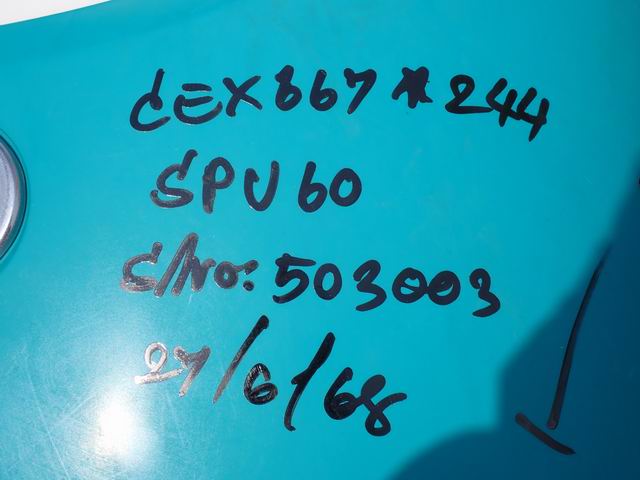 CEX867*244
SPU60
C/No: 503003
27/6/68